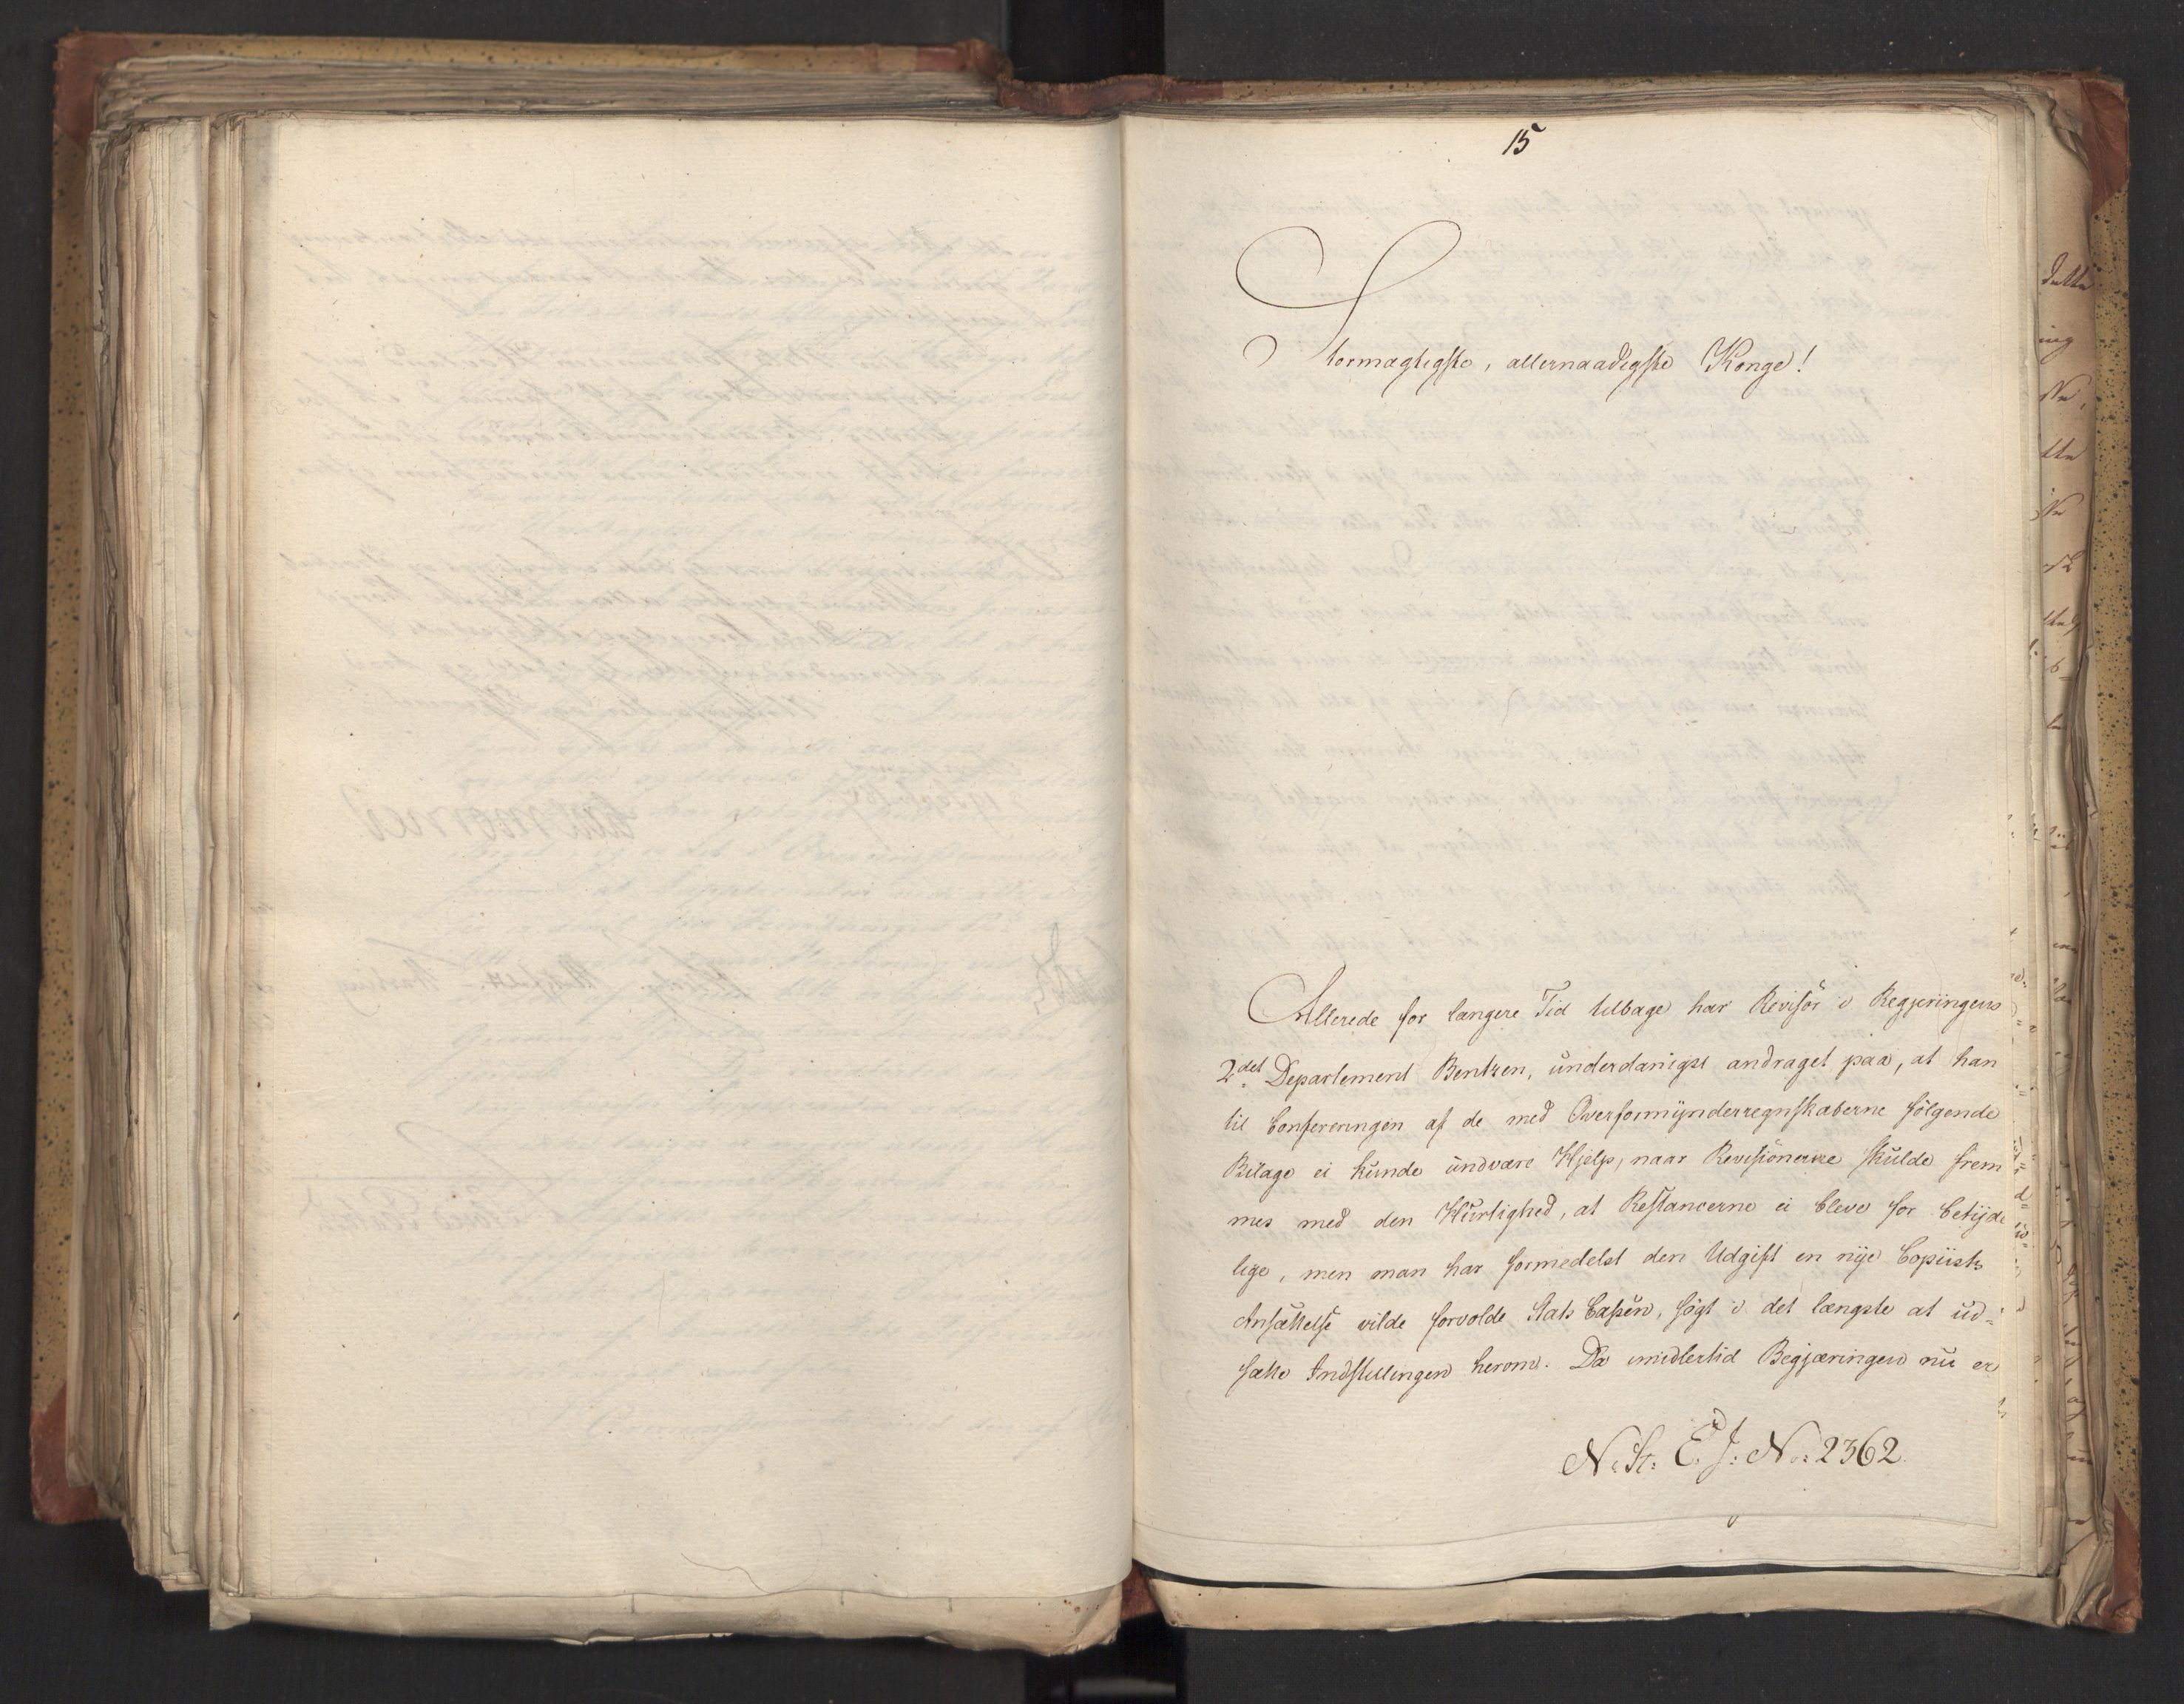 15
Stormægtigste, allernaadigste Konge!
Allerede for længere Tid tilbage har Revisor i Regjeringens
2det Departement Bentzen, underdanigst andraget paa, at han
til Confereringen af de med Overformynderregnskaberne følgende
Bilage ei kunde undvære Hjelp, naar Revisionerne skulde frem
mes med den Hurtighed, at Restancerne ei bleve for betyde
lige, men man har formedelst den Udgift en nye Copiists
Ansættelse vilde forvolde Stats Cassen, søgt i det længste at ud=
sætte Indstillingen herom. Da imidlertid Begjæringen nu er
N. St: E. J: No: 2362.